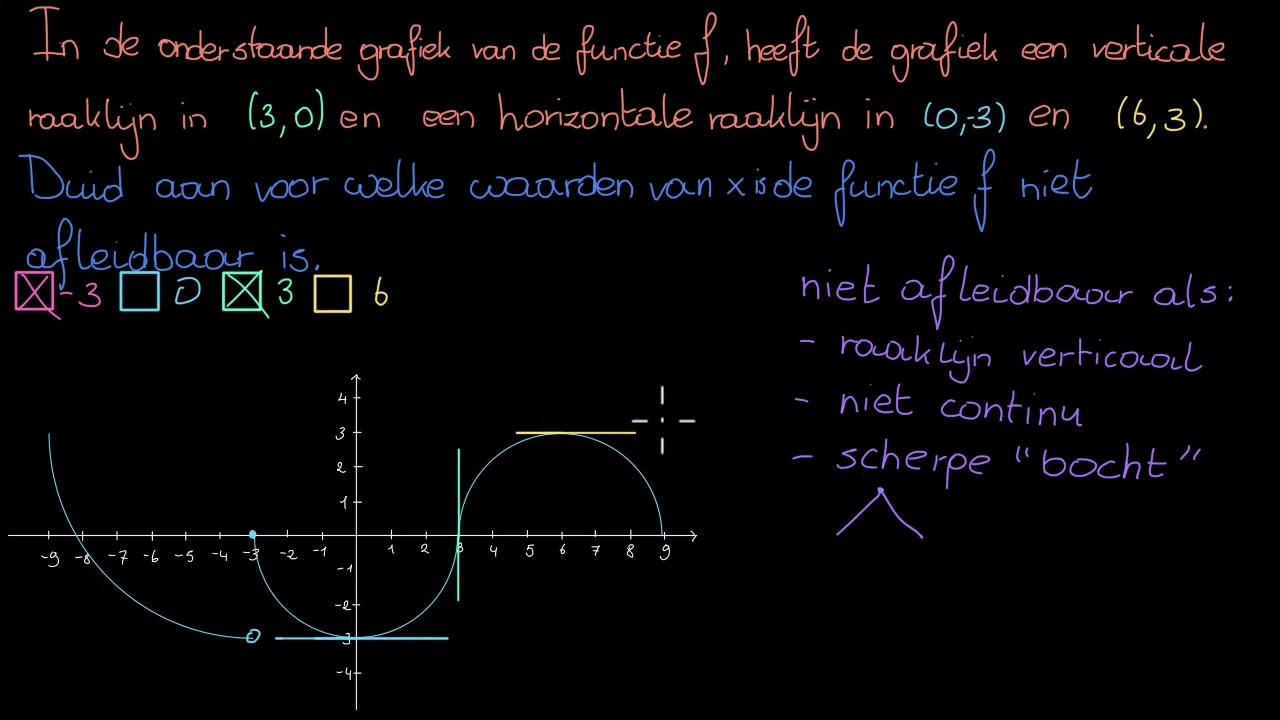 In de onderstaande grafiek van de functie f, heeft de grafiek een verticale
raaklijn in (3,0) en een horizontale raaklijn in (0,-3) en (6,3).
Duid aan voor welke waarden van x is de functie f niet
afleidbaar is.
-3 0 3 6
niet afleidbaar als:
- raaklijn verticaal
- niet continu
- scherpe "bocht"
4
3
2
1
-9 -8 -7 -6 -5 -4 -3 -2 -1 1 2 3 4 5 6 7 8 9
-1
-2
-3
-4